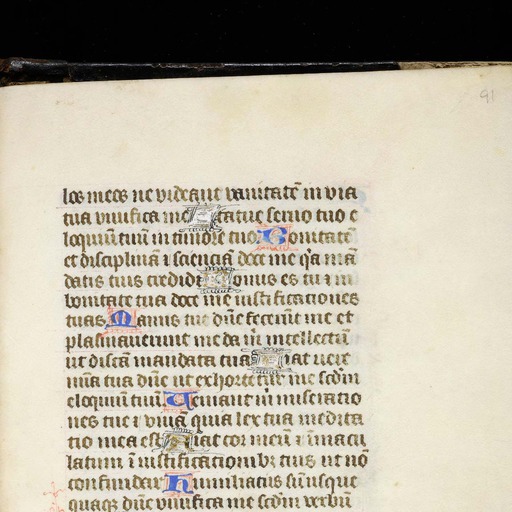 91
los meos ne videant vanitatē in via
tua vivifica me Statue servo tuo e
loquiū tuū in timore tuo Bonitatē
et disciplinā ⁊ sciēciā doce me q̄a mā
datis tuis credidi Bonus es tu ⁊ in
bonitate tua doce me iustificationes
tuas Manus tue dn̄e fecerūt me et
plasmaverunt me da m̄ intellectū
ut discā mandata tua Fiat
tua dn̄e ut exhortetur me scd̄m
eloquiū tuū Veniant m̄ miseratio
nes tue ⁊ vivā quia lex tua medita
tio mea est Fiat cor meū ī̄macu
latum ī iustificationibȝ tuis ut nō
confundar Humiliatus sū usque
quaqȝ dn̄e vivifica me scd̄m verbū